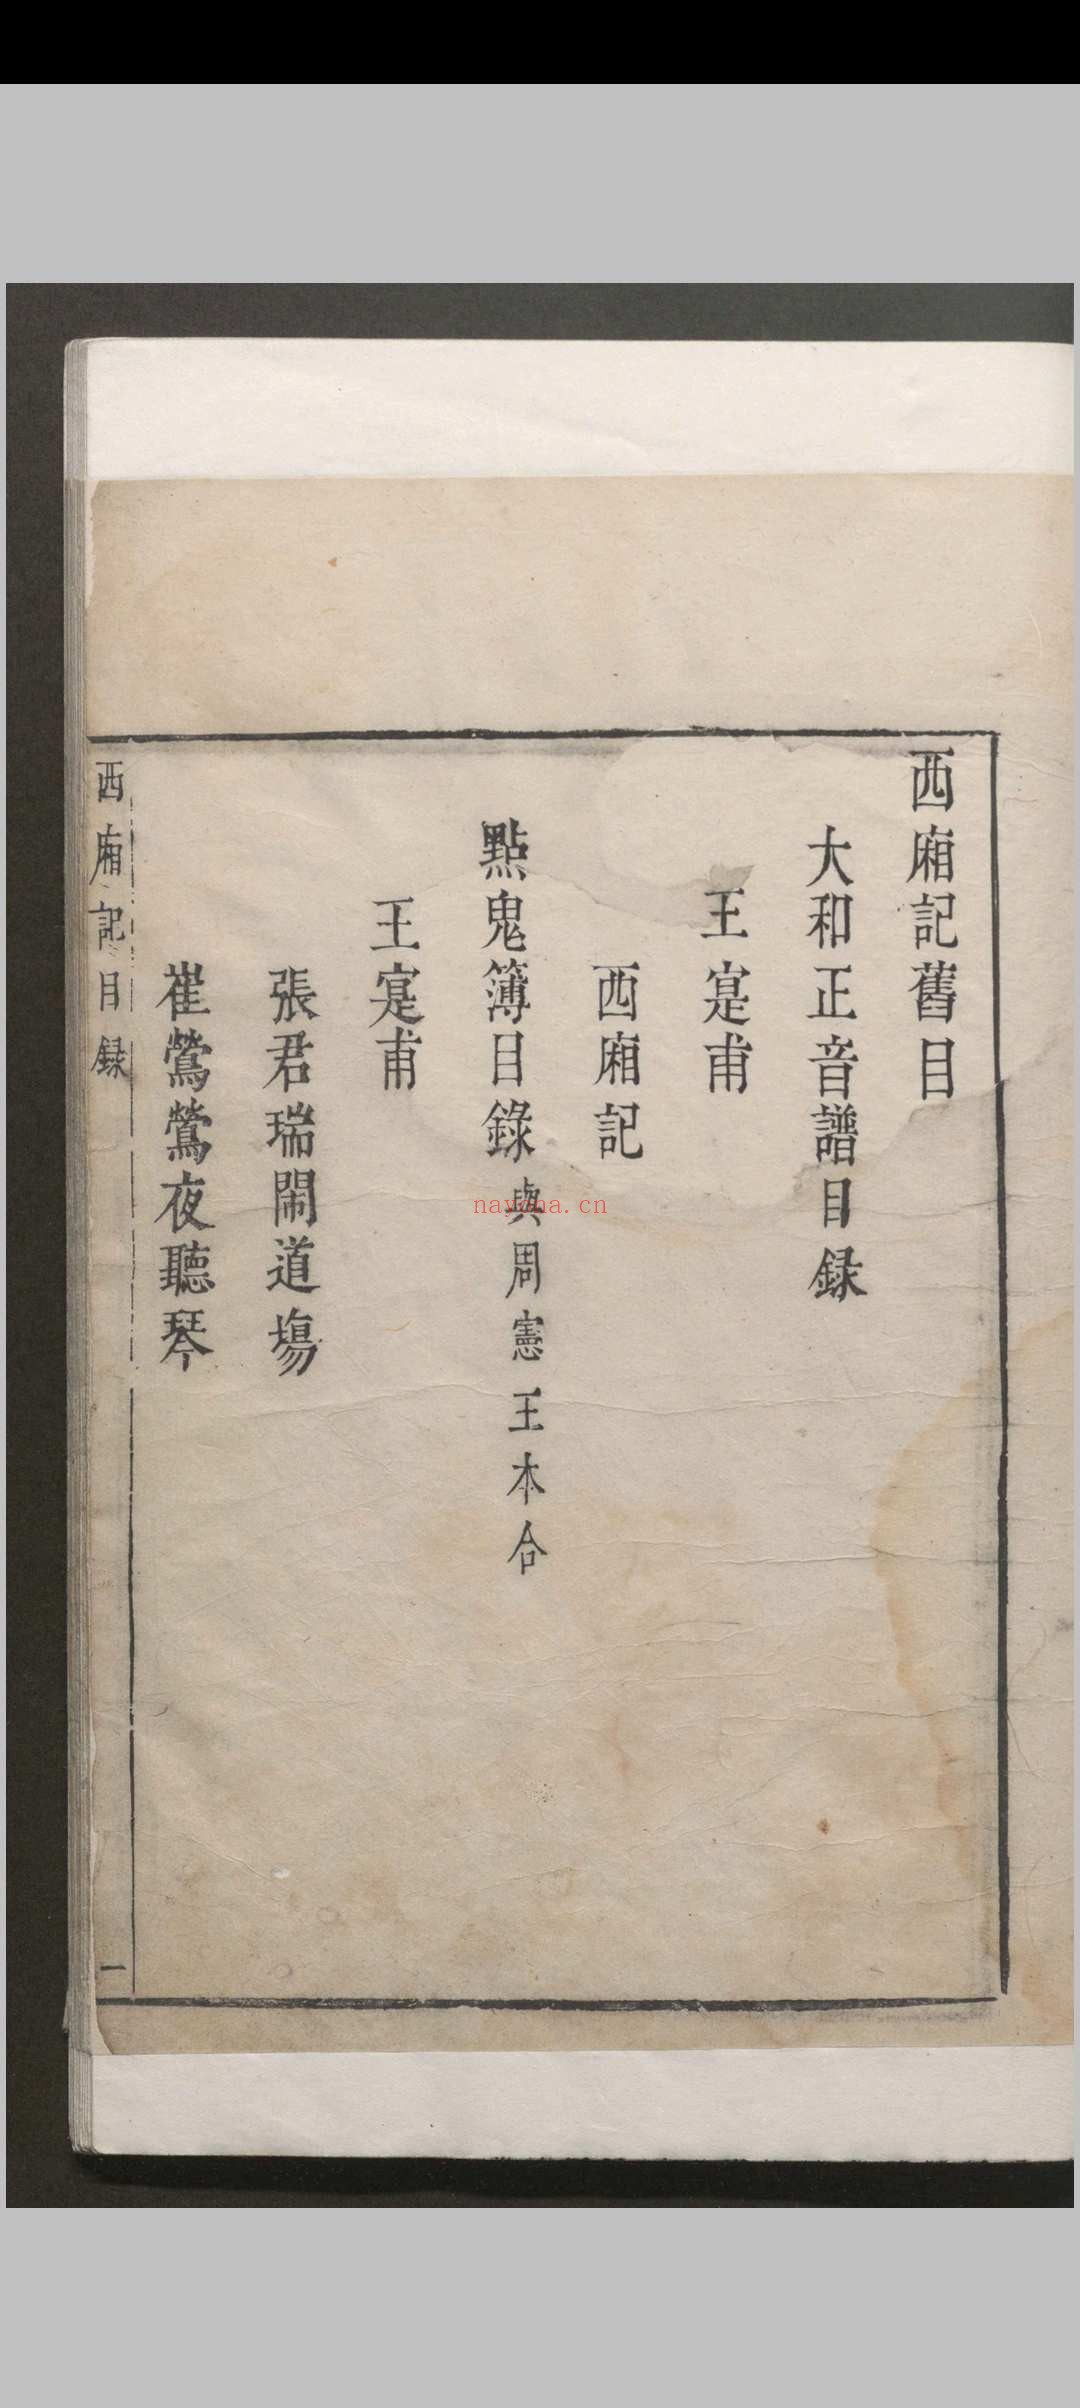 西廂記舊目
大和正音譜目録
王寔甫
西廂記
點鬼簿目錄與周憲王本合
王寔甫
張君瑞鬧道塲
崔鶯鶯夜聽琴
西廂記目録
一
nayona.cn